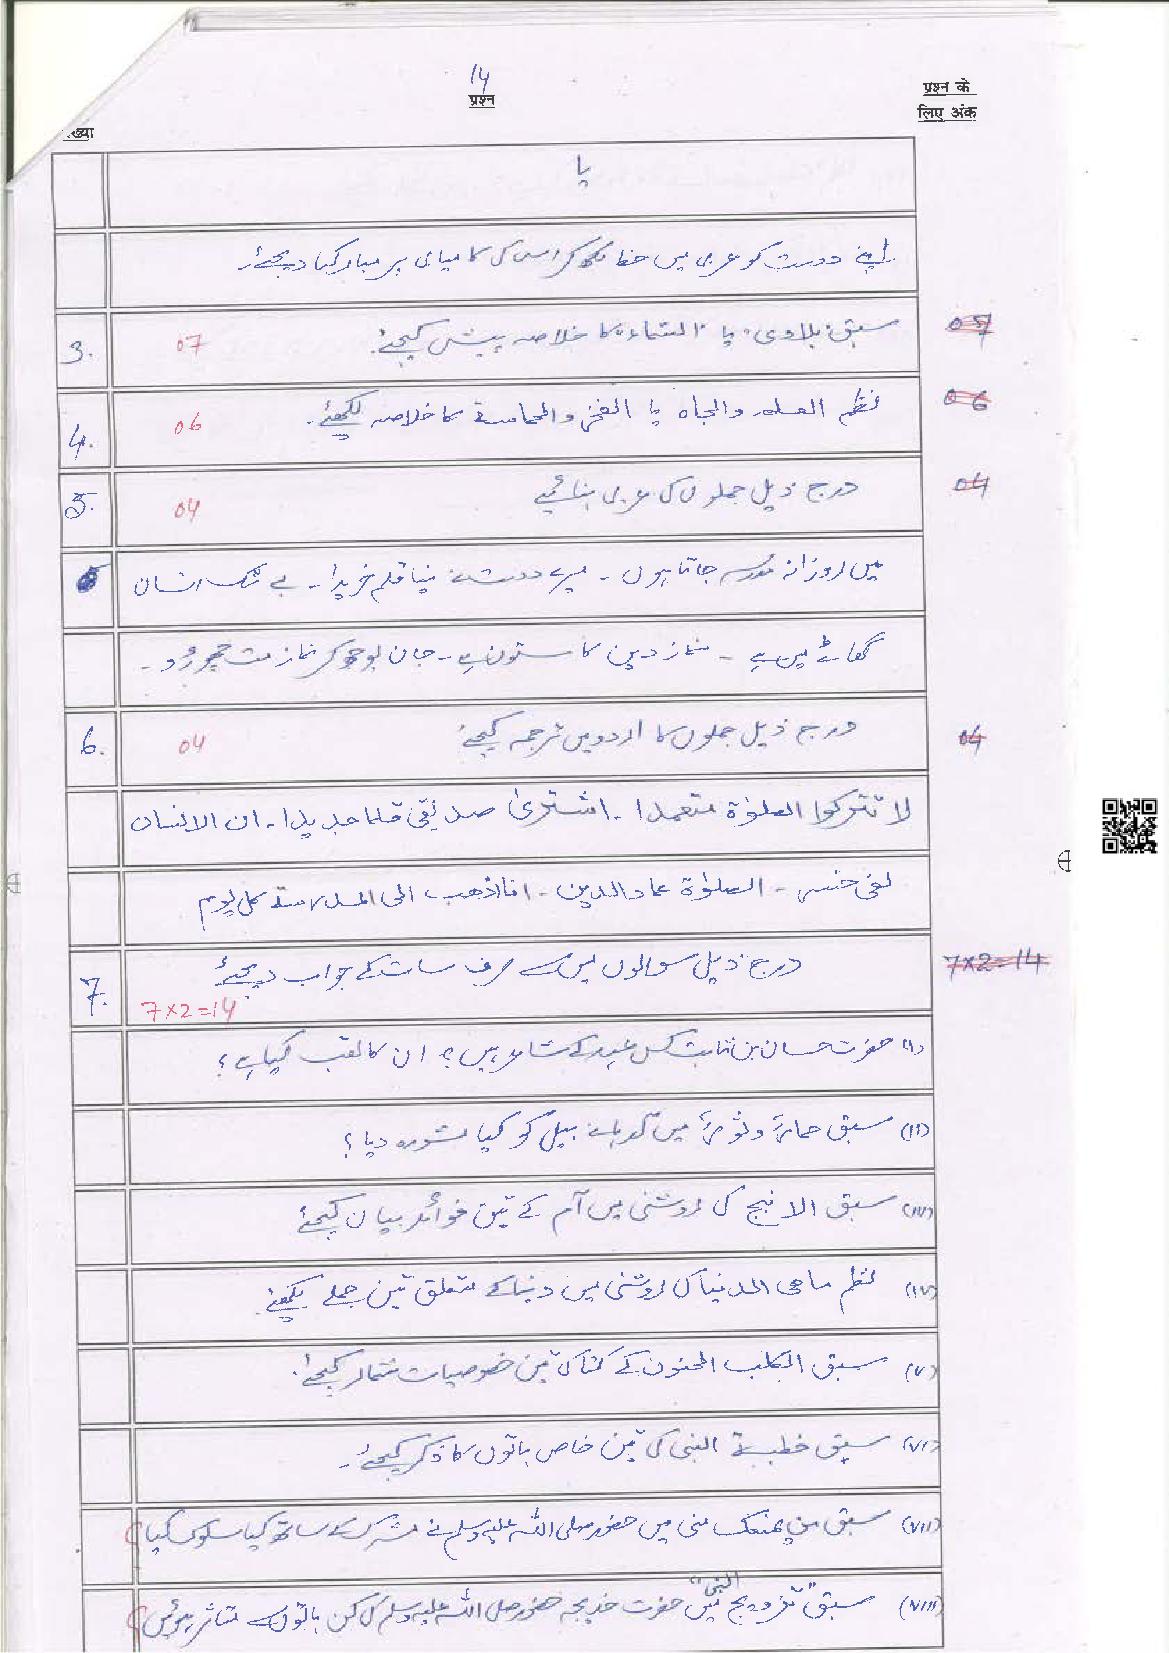 14
प्रश्न
प्रश्न के
लिए अंक
ख्या
یا
اپنے دوست کو عربی میں خط لکھ کر اس کی کامیابی پر مبارکباد دیجئے۔
3. سبق بلادی یا الشتاء کا خلاصہ پیش کیجئے۔ 07 07
4. نظم العلم والجاہ یا الفخر والحماسۃ کا خلاصہ لکھئے۔ 06 06
5. درج ذیل جملوں کی عربی بنائیے 04 04
میں روزانہ مدرسہ جاتا ہوں ۔ میرے دوست نے نیا قلم خریدا ۔ بے شک انسان
گھاٹے میں ہے ۔ نماز دین کا ستون ہے ۔ جان بوجھ کر نماز مت چھوڑو ۔
6. درج ذیل جملوں کا اردو میں ترجمہ کیجئے 04 04
لا تترکوا الصلوٰۃ متعمدا ۔ اشتریٰ صدیقی قلما جدیدا ۔ ان الانسان
لفی خسر ۔ الصلوٰۃ عماد الدین ۔ انا اذھب الی المدرسۃ کل یوم
7. درج ذیل سوالوں میں سے صرف سات کے جواب دیجئے 7×2=14 7×2=14
(i) حضرت حسان بن ثابت کس عہد کے شاعر ہیں؟ ان کا لقب کیا ہے؟
(ii) سبق حمار و ثور میں گدہا نے بیل کو کیا مشورہ دیا؟
(iii) سبق الانبج کی روشنی میں آم کے تین فوائد بیان کیجئے
(iv) نظم ماھی الدنیا کی روشنی میں دنیا کے متعلق تین جملے لکھئے
(v) سبق الکلب المجنون کے کتا کی تین خصوصیات شمار کیجئے۔
(vi) سبق خطبۃ النبی کی تین خاص باتوں کا ذکر کیجئے۔
(vii) سبق من یمنعک منی میں حضور صلی اللہ علیہ وسلم نے مشرک کے ساتھ کیا سلوک کیا؟
(viii) سبق "تزویج النبی" میں حضرت خدیجہ حضور صلی اللہ علیہ وسلم کی کن باتوں سے متاثر ہوئیں؟